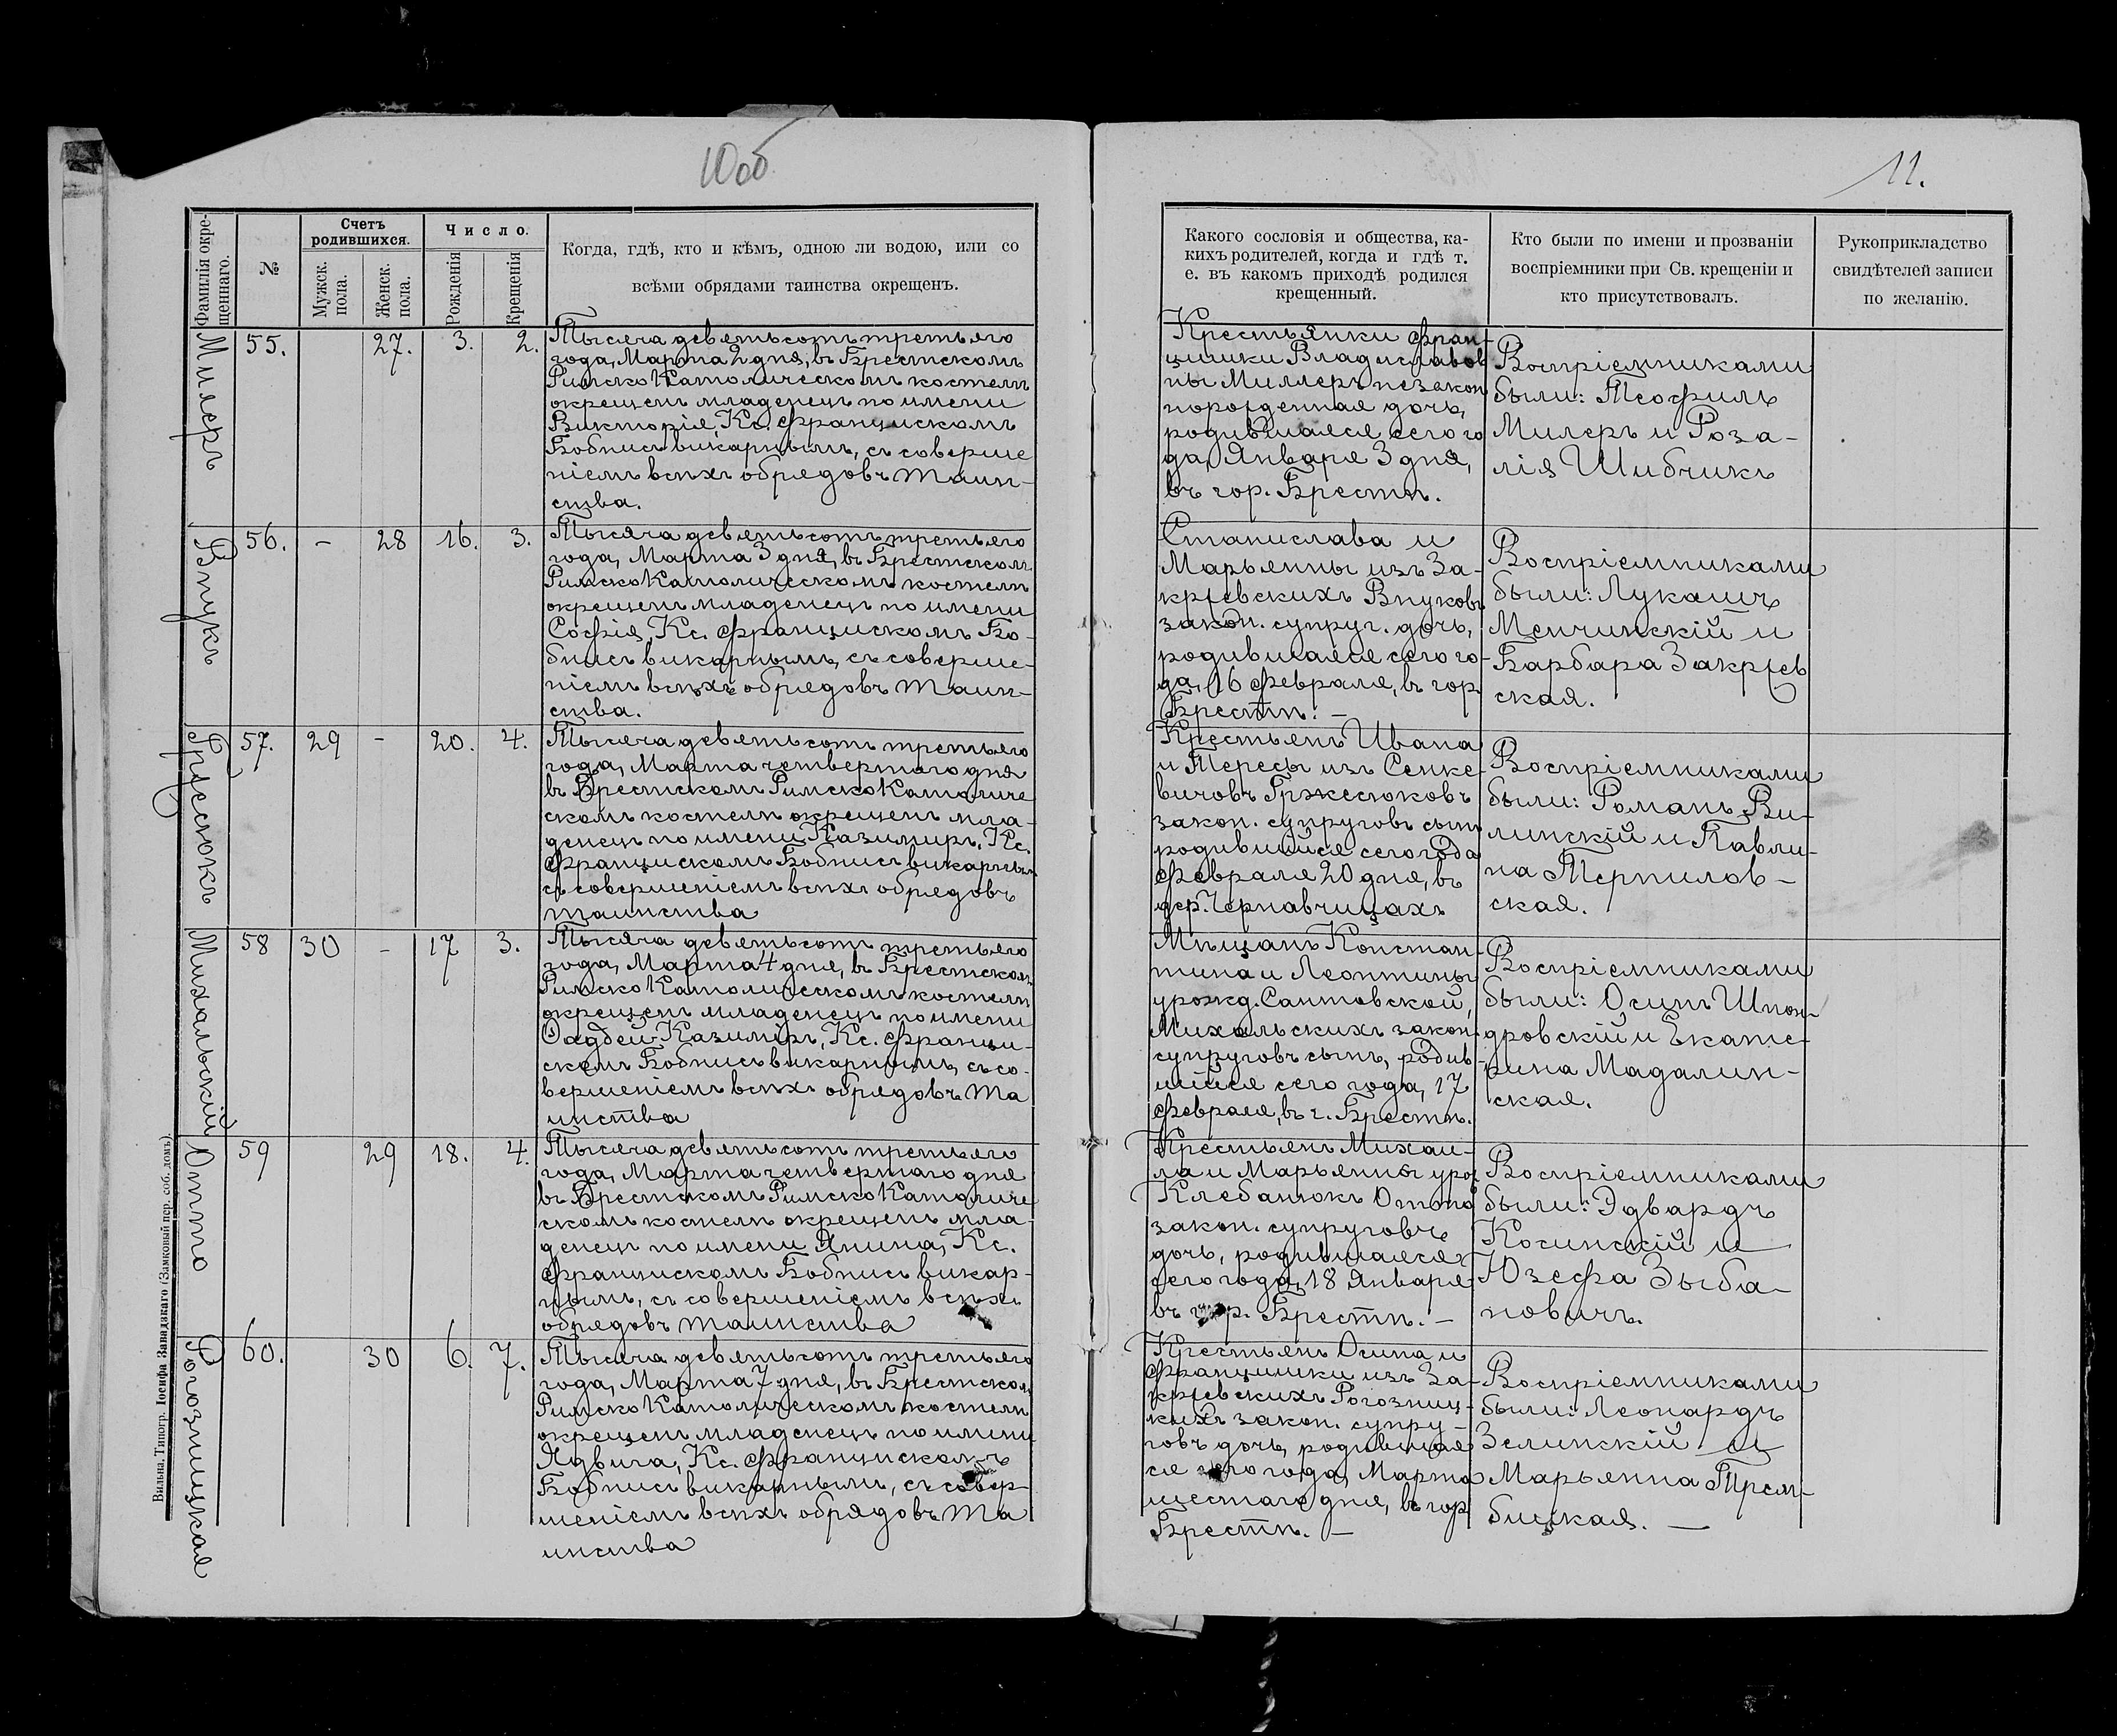 10об
11.
Фамилія окре-
щеннаго.
№
Счетъ
родившихся.
Мужск.
пола.
Женск.
пола.
Число.
Рожденія
Крещенія
Когда, гдѣ, кто и кѣмъ, одною ли водою, или со
всѣми обрядами таинства окрещенъ.
Какого сословія и общества, ка-
кихъ родителей, когда и гдѣ т.
е. въ какомъ приходѣ родился
крещенный.
Кто были по имени и прозваніи
воспріемники при Св. крещеніи и
кто присутствовалъ.
Рукоприкладство
свидѣтелей записи
по желанію.
Милеръ
55.
27.
3.
2.
Тысяча девятьсотъ третьяго
года, Марта 2 дня, въ Брестскомъ
Римско Католическомъ костелѣ
окрещенъ младенецъ по имени
Викторія, Кс. Францискомъ
Бобнисъ викарнымъ, съ соверше
ніемъ всѣхъ обрядовъ таин-
ства.
Крестьянки Фран-
цишки Владиславов
ны Миллеръ незакон
норожденная дочь,
родившаяся сего го
да, Января 3 дня,
въ гор. Брестѣ.
Воспріемниками
были: Теофилъ
Милеръ и Роза-
лія Шибчикъ
Внукъ
56.
-
28
16.
3.
Тысяча девятьсотъ третьяго
года, Марта 3 дня, въ Брестском
Римско Католическомъ костелѣ
окрещенъ младенецъ по имени
Софія, Кс. Францискомъ Бо-
бнисъ викарнымъ, съ соверше-
ніемъ всѣхъ обрядовъ таин-
ства.
Станислава и
Марьянны изъ За-
кржевскихъ Внуковъ
закон. супруг. дочь,
родившаяся сего го-
да, 16 февраля, въ гор.
Брестѣ. -
Воспріемниками
были: Лукашъ
Менчинскій и
Барбара Закржев
ская.
Гржесюкъ
57.
29
-
20.
4.
Тысяча девятьсотъ третьяго
года, Марта четвертаго дня
въ Брестскомъ Римско Католиче
скомъ костелѣ окрещенъ мла-
денецъ по имени Казимиръ, Кс.
Францискомъ Бобнисъ викарным
съ совершеніемъ всѣхъ обрядовъ
таинства
Крестьянъ Ивана
и Тересы изъ Сенке-
вичовъ Гржесюковъ
закон. супруговъ сынъ
родившійся сего года
Февраля 20 дня, въ
дер. Чернавчицахъ
Воспріемниками
были: Романъ Ви-
линскій и Павли-
на Терпилов-
ская.
Михальскій
58
30
-
17
3.
Тысяча девятьсотъ третьяго
года, Марта 4 дня, въ Брестском
Римско Католическомъ костелѣ
окрещенъ младенецъ по имени
Фаддей-Казимиръ, Кс. Францы-
скомъ Бобнисъ викарнымъ, съ со-
вершеніемъ всѣхъ обрядовъ та
инства
Мѣщанъ Констан-
тина и Леонтины
урожд. Сантовской,
Михальскихъ закон.
супруговъ сынъ, родив-
шійся сего года, 17
февраля, въ г. Брестѣ.
Воспріемниками
были: Осипъ Шпон-
дровскій и Екате-
рина Мадалин-
ская.
Отто
59
29
18.
4.
Тысяча девятьсотъ третьяго
года, Марта четвертаго дня
въ Брестскомъ Римско Католиче
скомъ костелѣ окрещенъ мла-
денецъ по имени Янина, Кс.
Францискомъ Бобнисъ викар-
нымъ, съ совершеніемъ всѣхъ
обрядовъ таинства
Крестьянъ Михаи-
ла и Марьянны урож
Клебанюкъ Отто
закон. супруговъ
дочь, родившаяся
сего года, 18 Января
въ гор. Брестѣ. -
Воспріемниками
были: Эдвардъ
Косинскій и
Юзефа Зыба-
новичъ.
Рогозницкая
60.
30
6.
7.
Тысяча девятьсотъ третьяго
года, Марта 7 дня, въ Брестском
Римско Католическомъ костелѣ
окрещенъ младенецъ по имени
Ядвига, Кс. Францискомъ
Бобнисъ викарнымъ, съ совер-
шеніемъ всѣхъ обрядовъ та
инства
Крестьянъ Осипа и
Францишки изъ За-
кржевскихъ Рогозниц-
кихъ закон. супру-
говъ дочь, родившая
ся сего года, Марта
шестаго дня, въ гор
Брестѣ. -
Воспріемниками
были: Леонардъ
Зелинскій и
Марьянна Трем-
бицкая. -
Вильна, Типогр. Іосифа Завадзкаго (Замковый пер. соб. домъ).